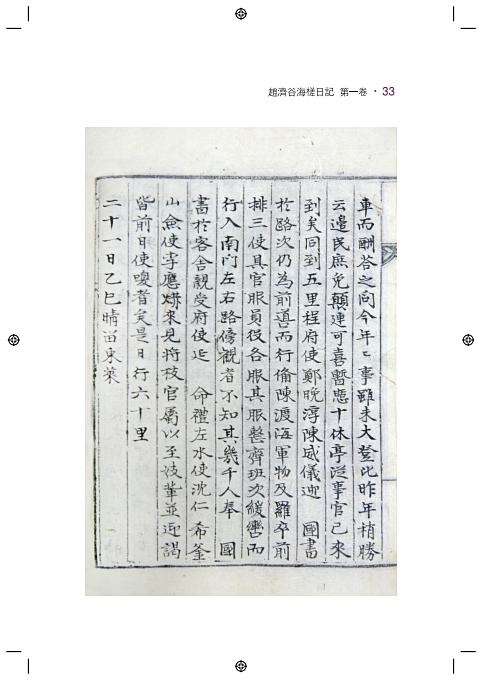 趙濟谷海槎日記 第一卷 · 33
車而酬答之向今年〻事雖未大登比昨年稍勝
云邊民庶免顚連可喜暫憩十休亭從事官已來
到矣同到五里程府使鄭晩淳陳威儀迎 國書
於路次仍為前導而行備陳渡海軍物及羅卒前
排三使具官服員役各服其服整齊班次緩轡而
行入南門左右路傍觀者不知其幾千人奉 國
書於客舍親受府使延 命禮左水使沈仁希釜
山僉使李應爀來見將校官屬以至妓輩並迎謁
皆前日使喚者矣是日行六十里
二十一日乙巳晴留東萊